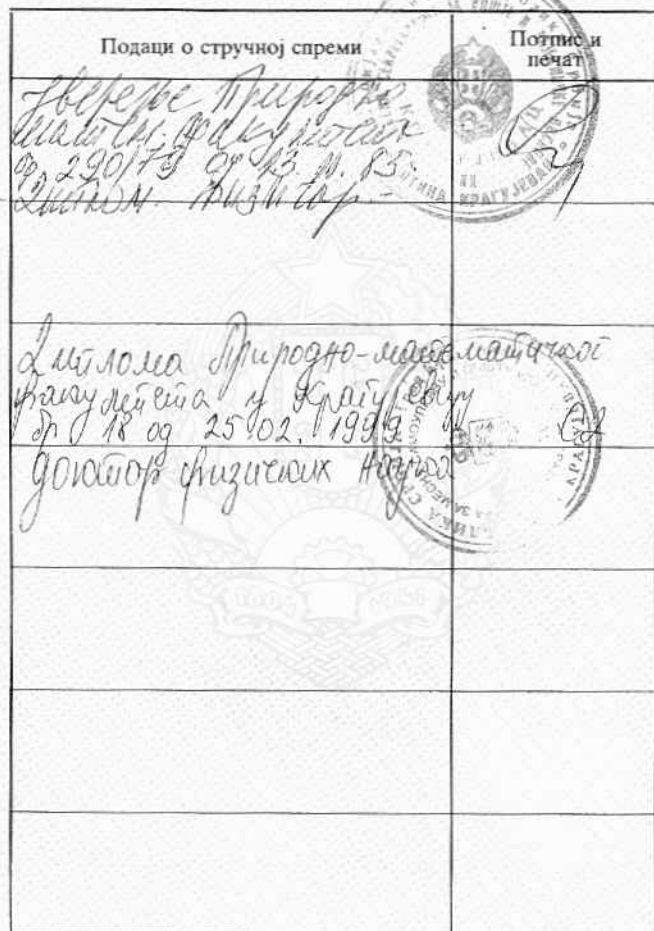 Подаци о стручној спреми
Потпис и
печат
Уверење Природно
матем. факултета
бр. 290/79 од 13. 11. 85.
Диплом. физичар.-
КРАГУЈЕВАЦ
Диплома Природно-математичког
факултета у Крагујевцу
бр. 18 од 25.02. 1999
доктор физичких наука